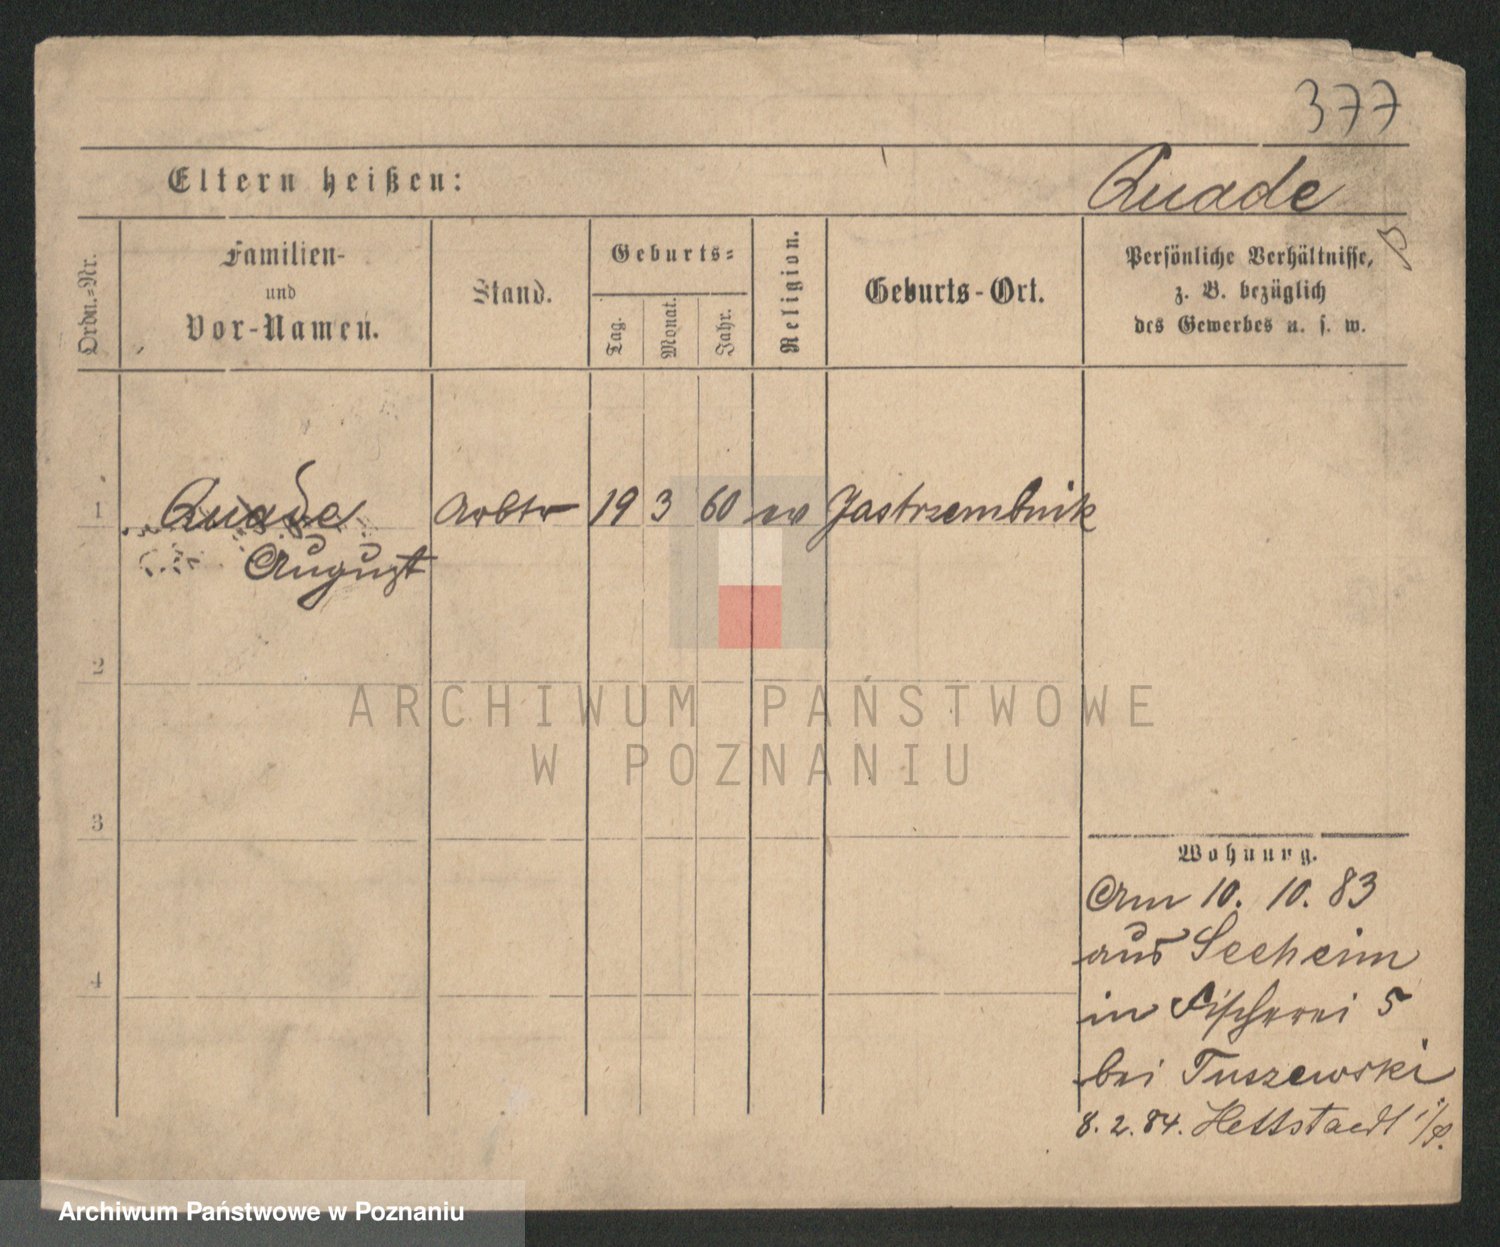 377
Eltern heißen:
Quade
Ordn.-Nr.
Familien-
und
Vor-Namen.
Stand.
Geburts-
Tag.
Monat.
Jahr.
Religion.
Geburts-Ort.
Persönliche Verhältnisse,
z. B. bezüglich
des Gewerbes u. s. w.
1
Quade Arbtr 19 3 60 ev Jastrzembnik
August
2
ARCHIWUM PAŃSTWOWE
W POZNANIU
3
Wohnung.
Am 10. 10. 83
aus Seeheim
in Fischerei 5
4
bei Tuszewski
8. 2. 84. Hettstaedt
Archiwum Państwowe w Poznaniu